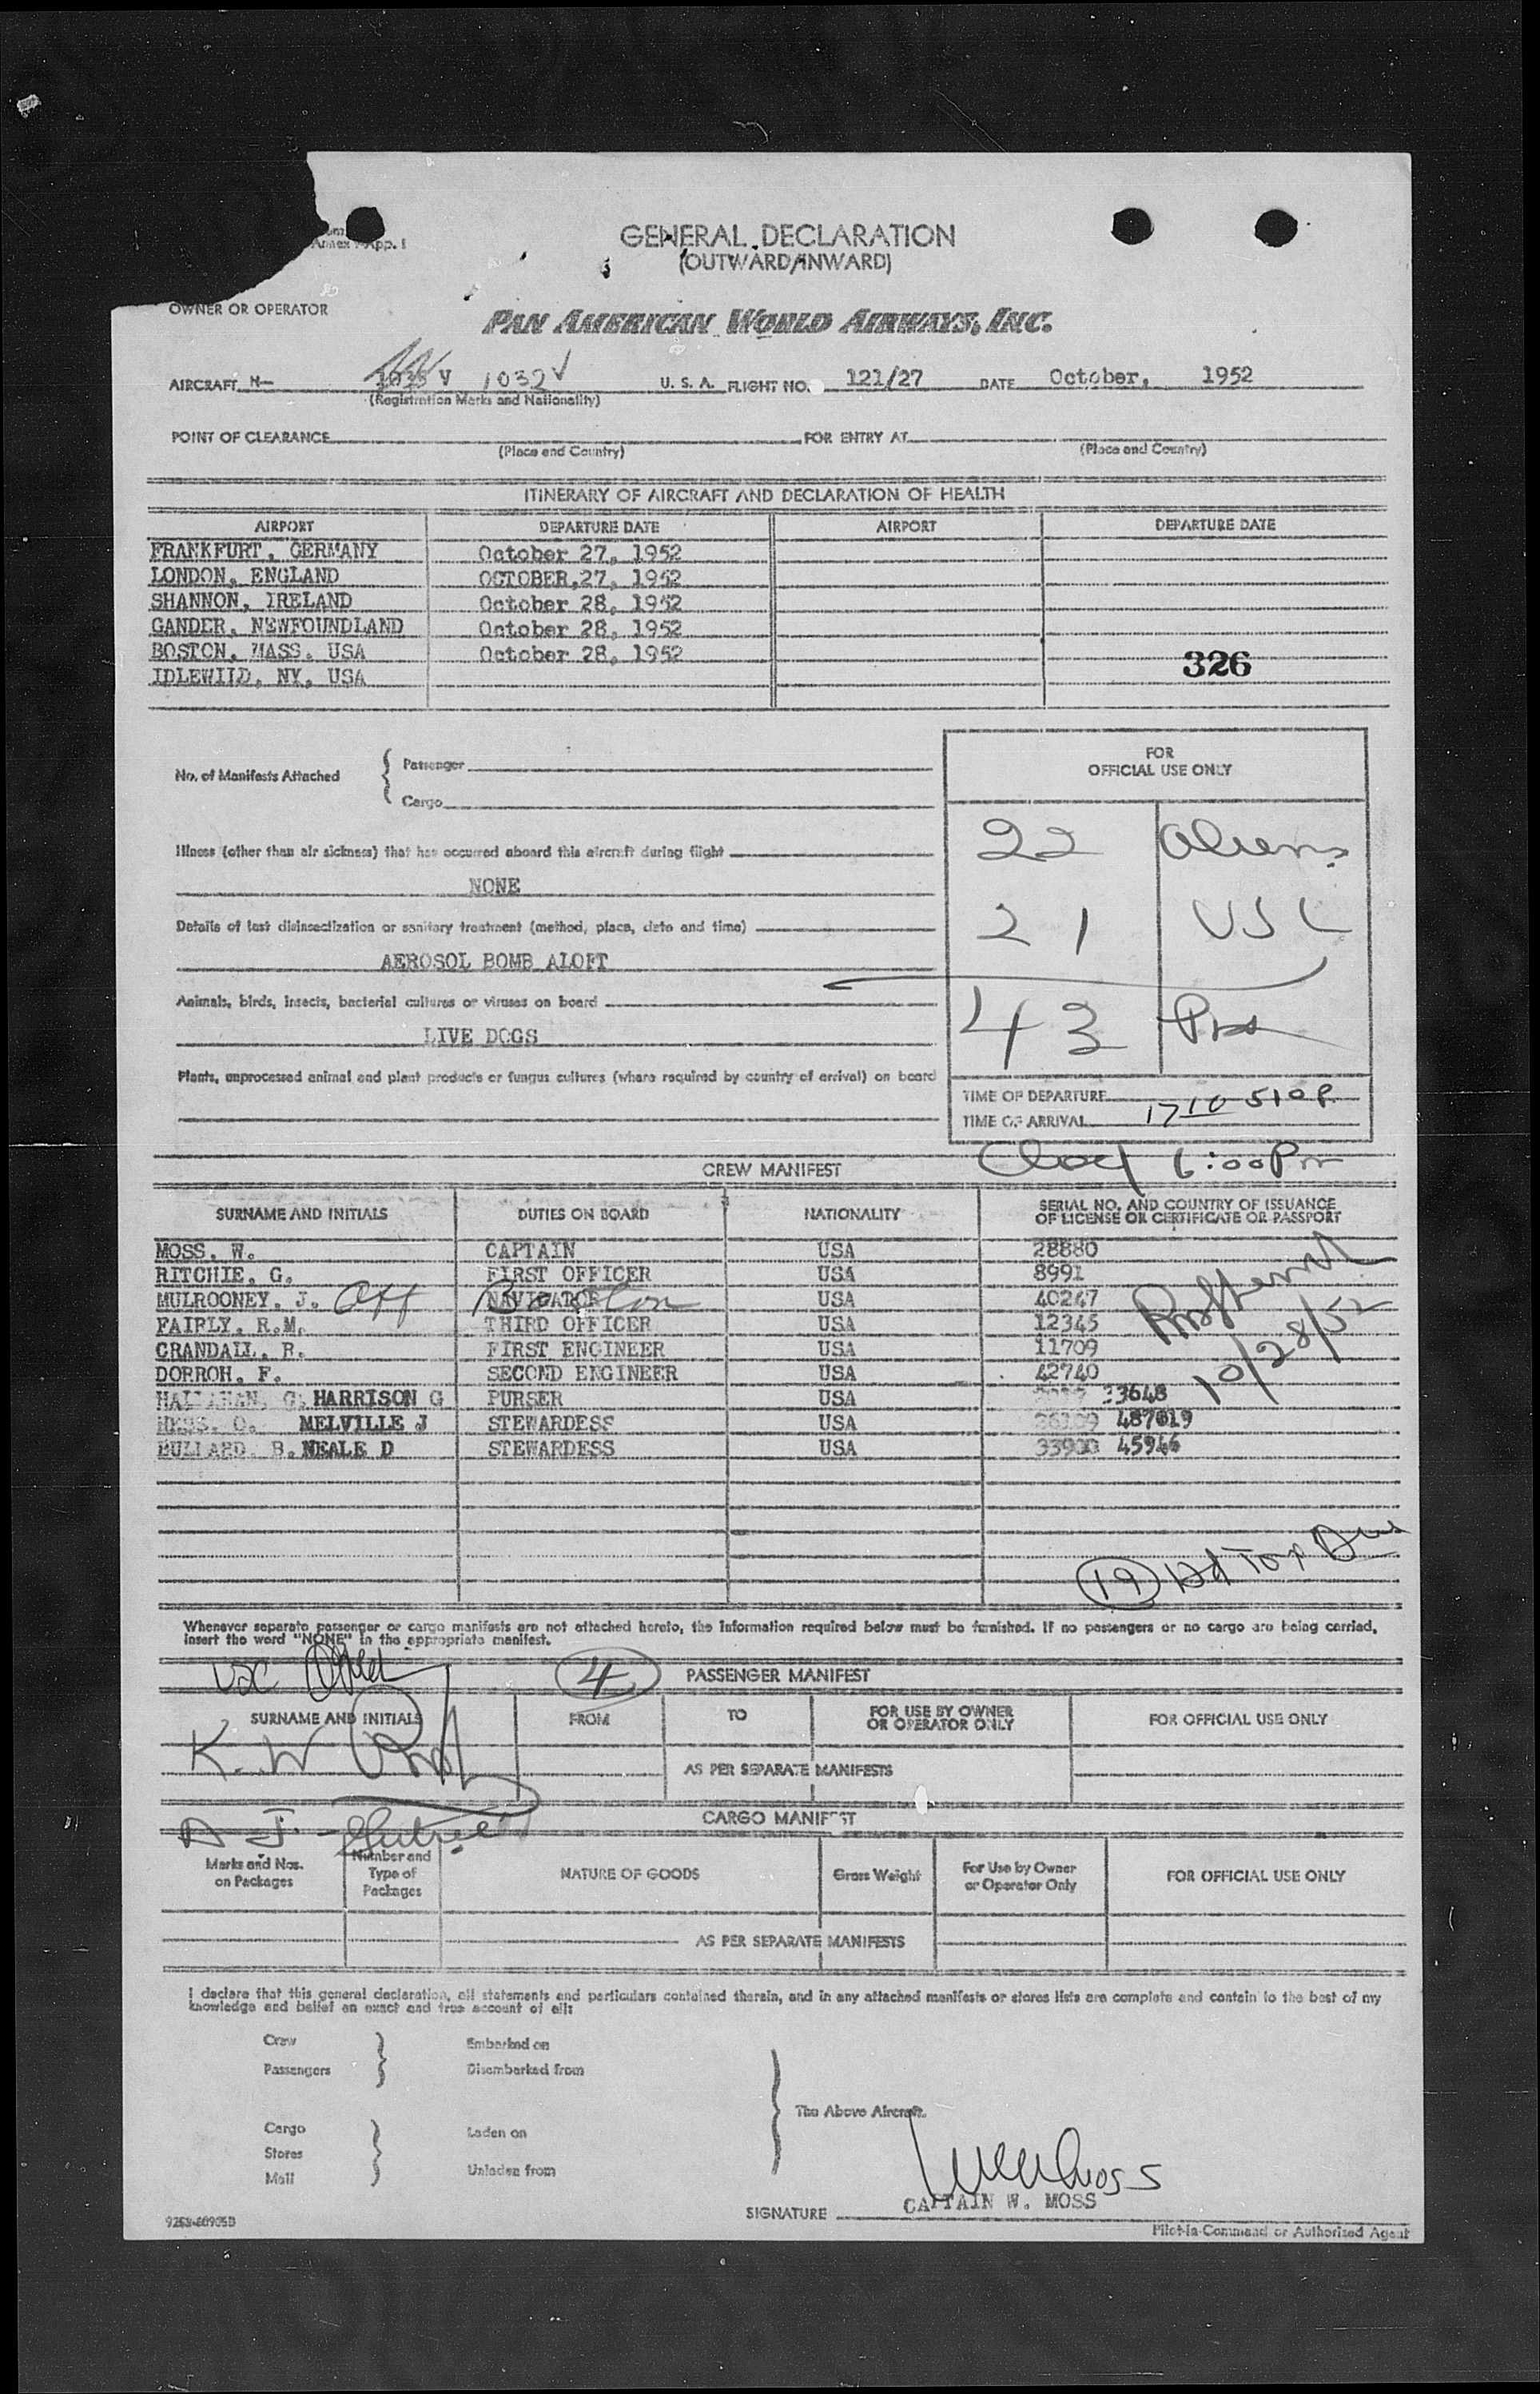 Annex App. I
GENERAL DECLARATION
(OUTWARD/INWARD)
OWNER OR OPERATOR
PAN AMERICAN WORLD AIRWAYS, INC.
AIRCRAFT N- 1032 V U. S. A. FLIGHT NO. 121/27 DATE October, 1952
(Registration Marks and Nationality)
POINT OF CLEARANCE FOR ENTRY AT
(Place and Country) (Place and Country)
ITINERARY OF AIRCRAFT AND DECLARATION OF HEALTH
AIRPORT DEPARTURE DATE AIRPORT DEPARTURE DATE
FRANKFURT, GERMANY October 27, 1952
LONDON, ENGLAND OCTOBER,27, 1952
SHANNON, IRELAND October 28, 1952
GANDER, NEWFOUNDLAND October 28, 1952
BOSTON, MASS. USA October 28, 1952
326
IDLEWILD, NY, USA
No. of Manifests Attached { Passenger
Cargo
FOR
OFFICIAL USE ONLY
22 Aliens
Illness (other than air sickness) that has occurred aboard this aircraft during flight
NONE
21 USC
Details of last disinsectization or sanitary treatment (method, place, date and time)
AEROSOL BOMB ALOFT
Animals, birds, insects, bacterial cultures or viruses on board
LIVE DOGS
43
Plants, unprocessed animal and plant products or fungus cultures (where required by country of arrival) on board
TIME OF DEPARTURE
TIME OF ARRIVAL 1710 510P
6:00Pm
CREW MANIFEST
SURNAME AND INITIALS DUTIES ON BOARD NATIONALITY SERIAL NO. AND COUNTRY OF ISSUANCE
OF LICENSE OR CERTIFICATE OR PASSPORT
MOSS, W. CAPTAIN USA 28880
RITCHIE, G. FIRST OFFICER USA 8991
MULROONEY, J. Off NAVIGATOR Boston USA 40247
FAIRLY, R.M. THIRD OFFICER USA 12345
CRANDALL, R. FIRST ENGINEER USA 11709
DORROH, F. SECOND ENGINEER USA 42740
10/28/52
HALLAHAN, G. HARRISON G PURSER USA 33648
HESS, O. MELVILLE J STEWARDESS USA 487019
BULLARD, B. NEALE D STEWARDESS USA 33900 45946
(19) Hd Tax
Whenever separate passenger or cargo manifests are not attached hereto, the information required below must be furnished. If no passengers or no cargo are being carried,
insert the word "NONE" in the appropriate manifest.
USC (4) PASSENGER MANIFEST
SURNAME AND INITIALS FROM TO FOR USE BY OWNER
OR OPERATOR ONLY FOR OFFICIAL USE ONLY
K. W
AS PER SEPARATE MANIFESTS
CARGO MANIFEST
A J
Marks and Nos.
on Packages Number and
Type of
Packages NATURE OF GOODS Gross Weight For Use by Owner
or Operator Only FOR OFFICIAL USE ONLY
AS PER SEPARATE MANIFESTS
I declare that this general declaration, all statements and particulars contained therein, and in any attached manifests or stores lists are complete and contain to the best of my
knowledge and belief an exact and true account of all:
Crew Embarked on
Passengers Disembarked from
The Above Aircraft.
Cargo Laden on
Stores
Mail Unladen from
SIGNATURE CAPTAIN W. MOSS
Pilot-in-Command or Authorized Agent